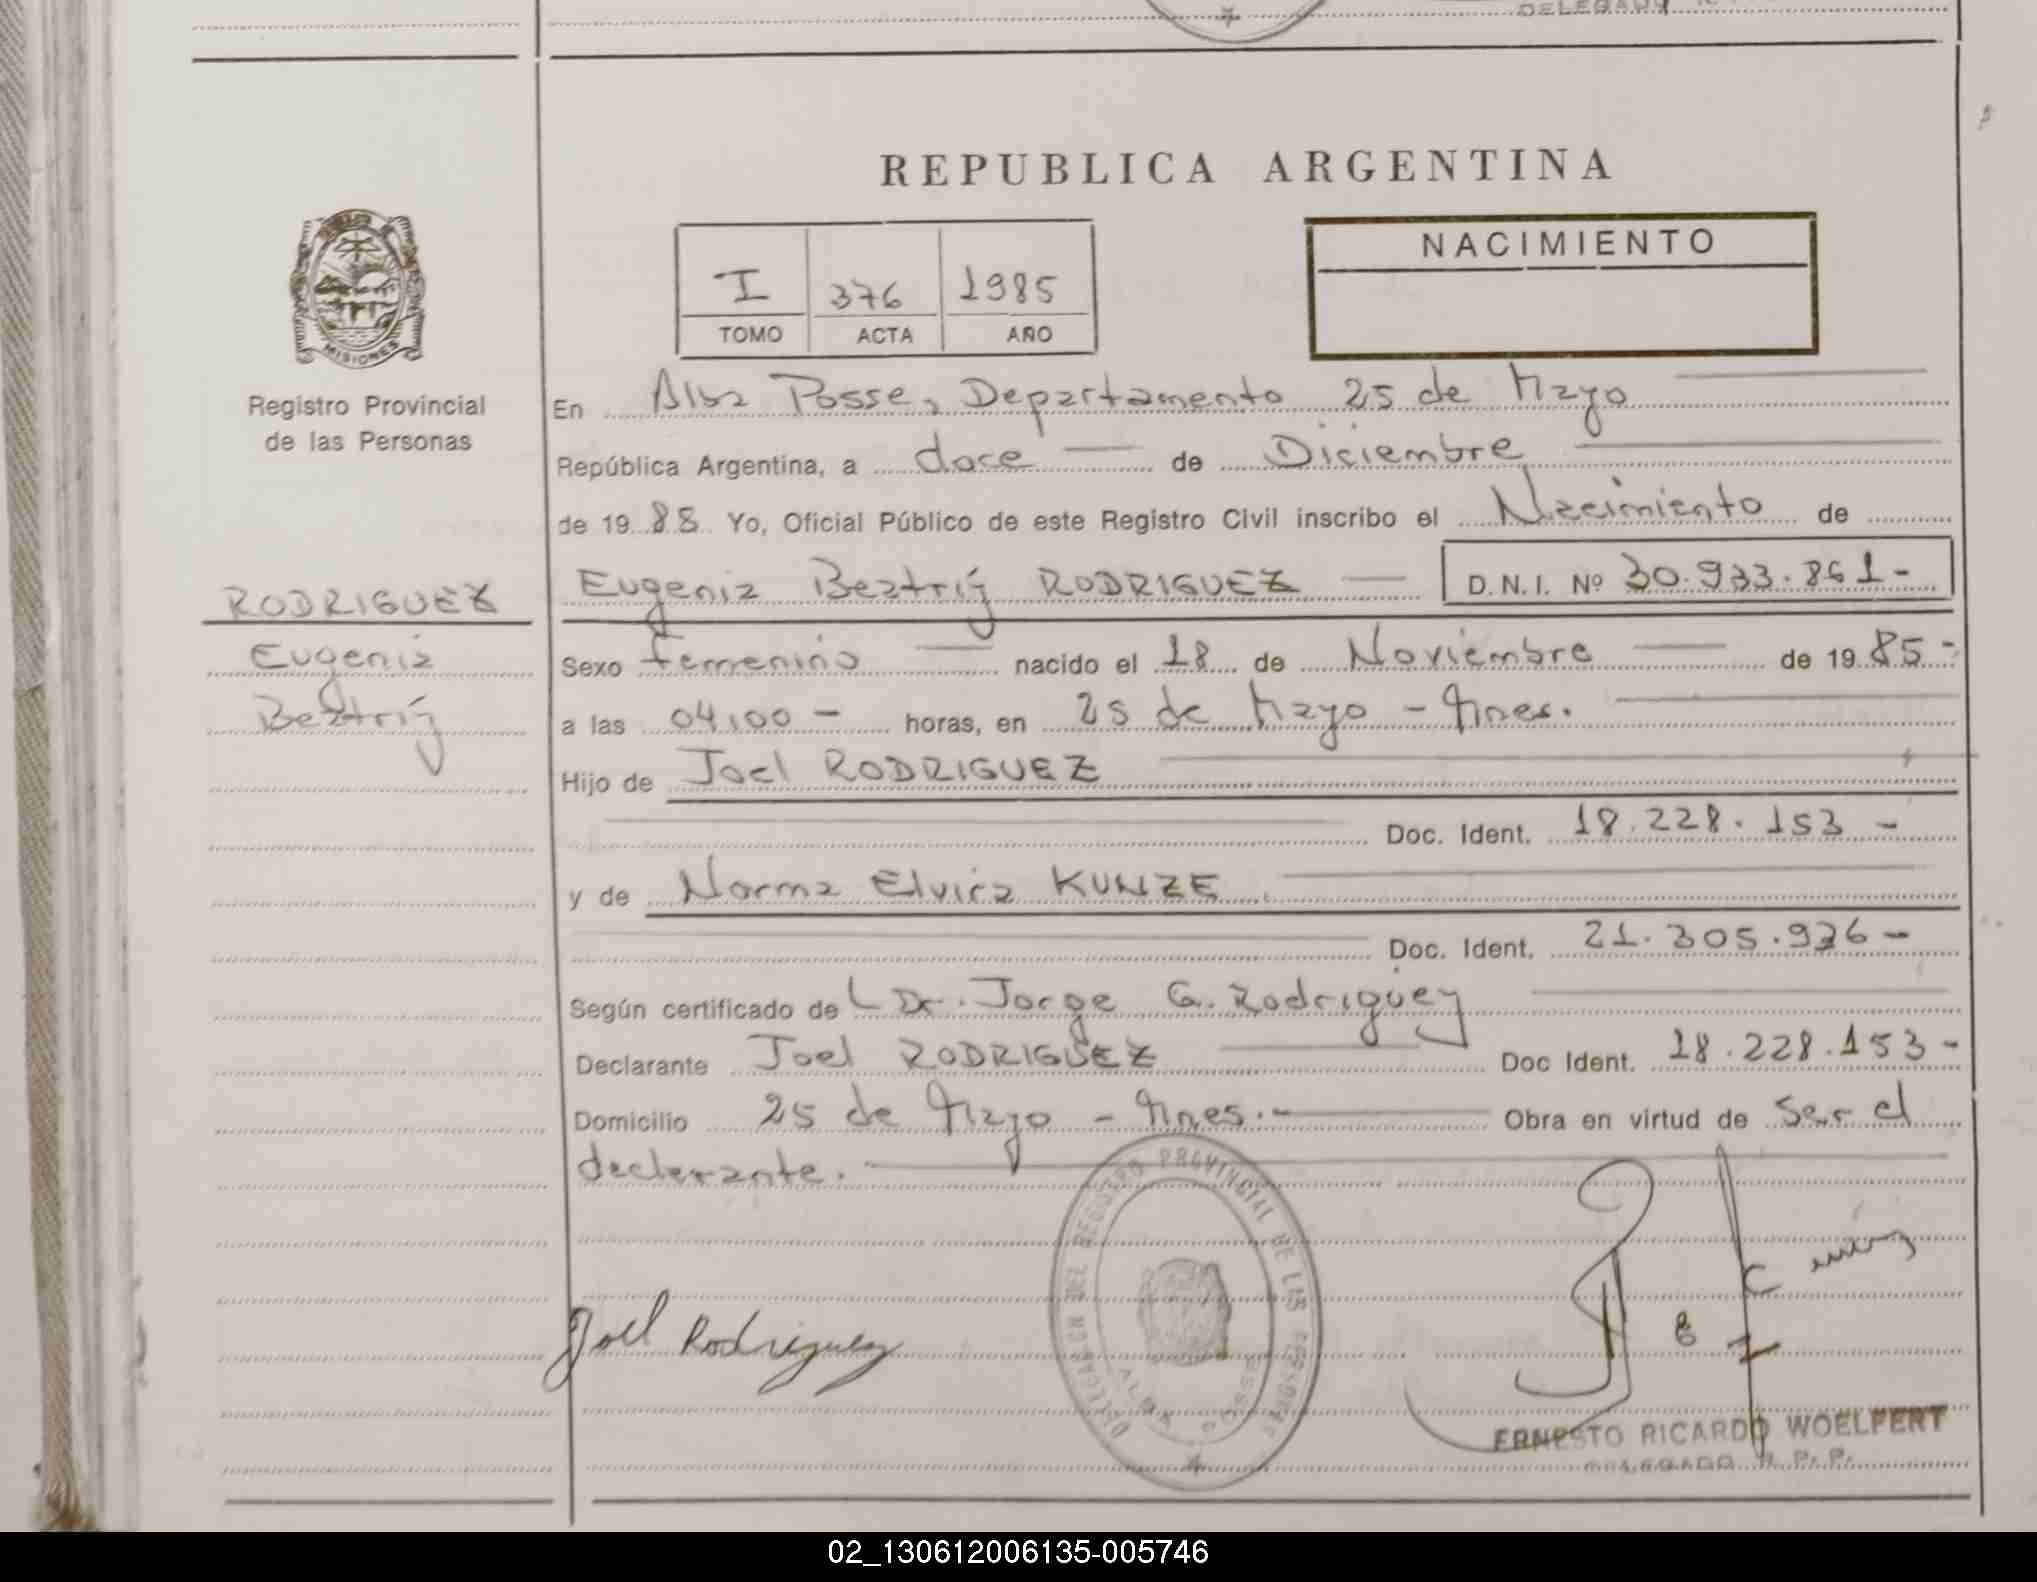 DELEGADO R
REPUBLICA ARGENTINA
MISIONES
Registro Provincial
de las Personas
I 376 1985
TOMO ACTA AÑO
NACIMIENTO
En Alba Posse, Departamento 25 de Mayo
República Argentina, a doce de Diciembre
de 19 85 Yo, Oficial Público de este Registro Civil inscribo el Nacimiento de
RODRIGUEZ
Eugenia Beatriz RODRIGUEZ D.N.I. Nº 30.933.861-
Eugenia
Beatriz
Sexo femenino nacido el 18 de Noviembre de 19 85-
a las 04,00 - horas, en 25 de Mayo - Mnes.
Hijo de Joel RODRIGUEZ
Doc. Ident. 18.228.153 -
y de Norma Elvira KUNZE
Doc. Ident. 21.305.936-
Según certificado de Dr. Jorge G. Rodriguez
Declarante Joel RODRIGUEZ Doc Ident. 18.228.153-
Domicilio 25 de Mayo - Mnes.- Obra en virtud de ser el
declarante.
DELEGACION DEL REGISTRO PROVINCIAL DE LAS PERSONAS
ALBA POSSE
Joel Rodriguez
ERNESTO RICARDO WOELFERT
DELEGADO R. P. P.
02_130612006135-005746